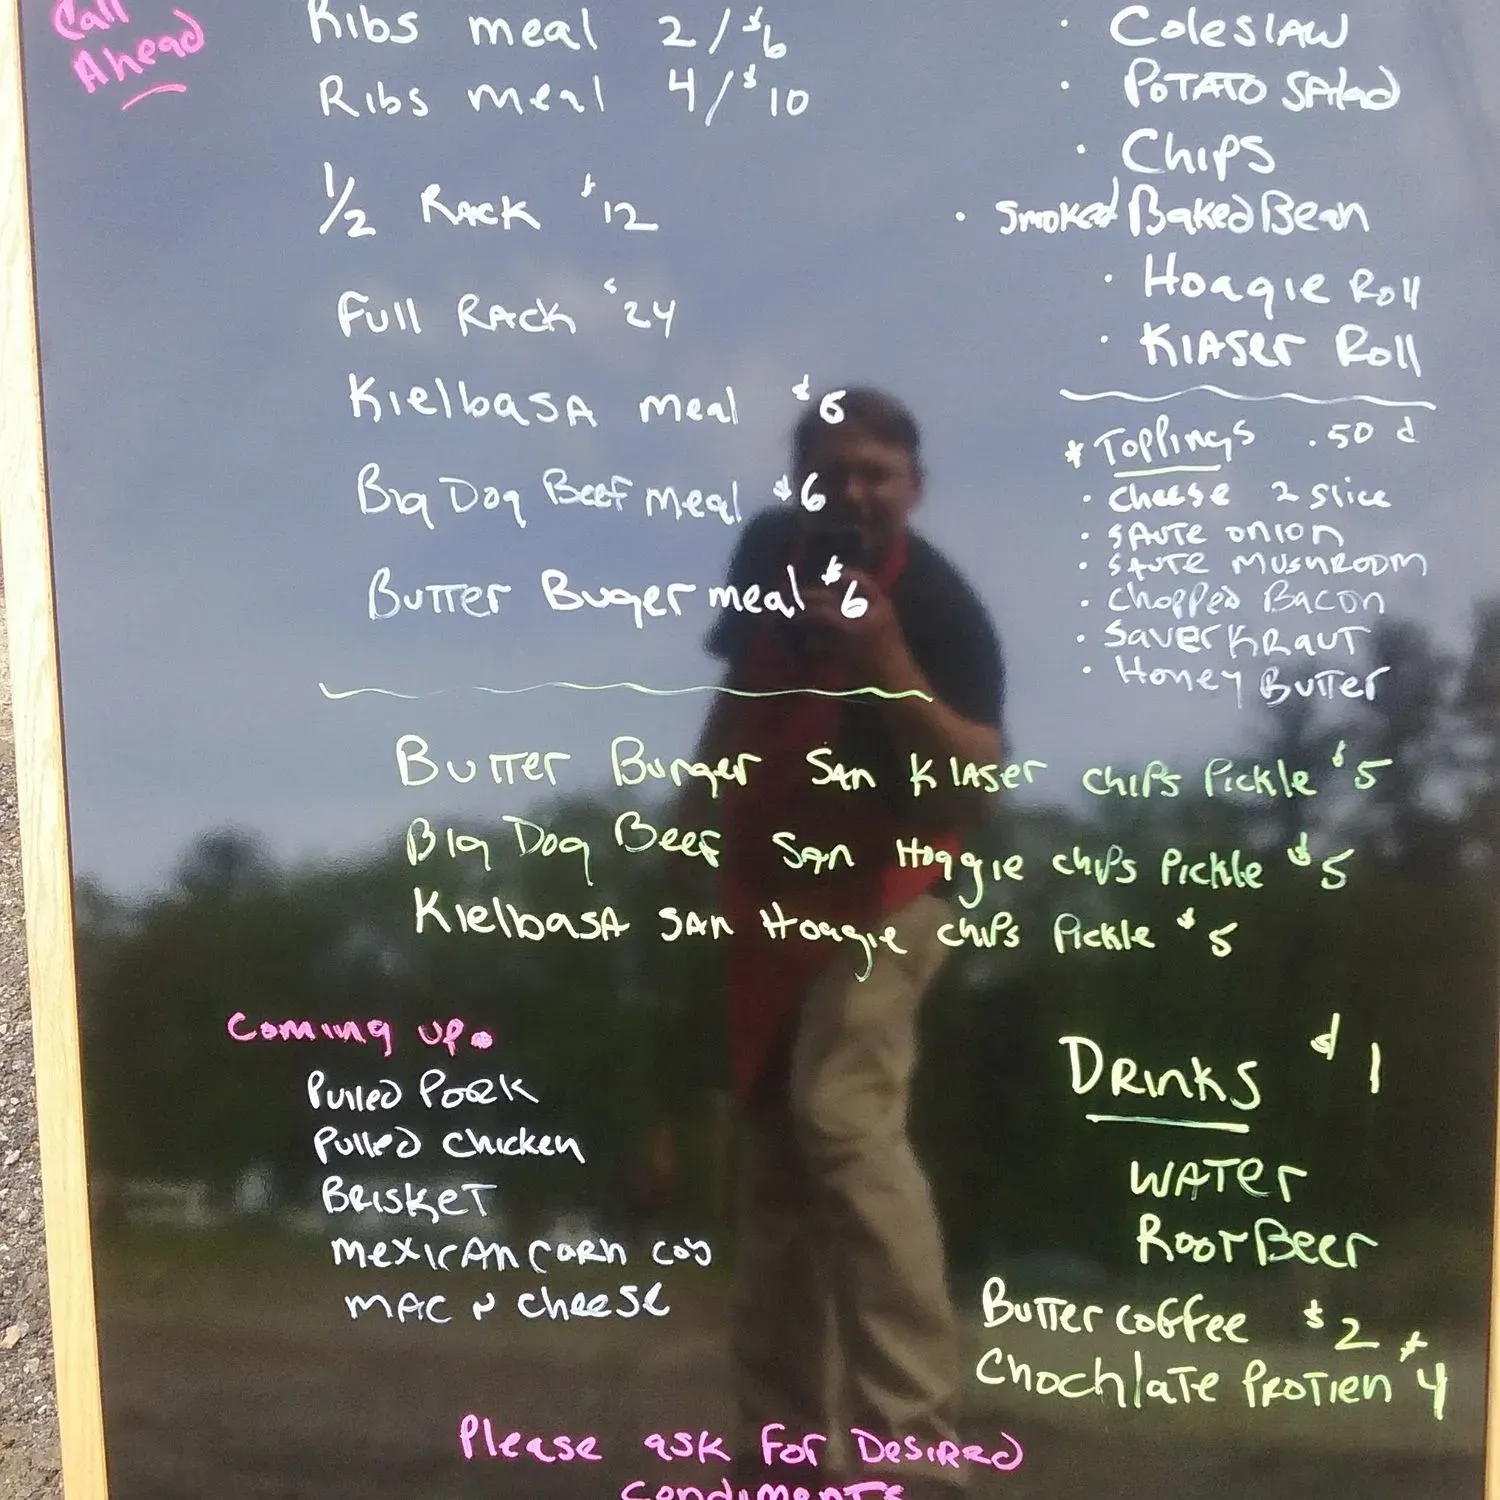 Call
Ahead
Ribs meal 2/$6
Ribs meal 4/$10
1/2 Rack $12
Full Rack $24
Kielbasa meal $6
Big Dog Beef meal $6
Butter Buger meal $6
· Coleslaw
· Potato Salad
· Chips
· Smoked Baked Bean
· Hoagie Roll
· Klaser Roll
* Toppings .50 ¢
· Cheese 2 slice
· Saute onion
· Saute mushroom
· Chopped Bacon
· Sauerkraut
· Honey Butter
Butter Burger San Klaser chips Pickle $5
Big Dog Beef San Hoagie chips Pickle $5
Kielbasa San Hoagie chips Pickle $5
Coming up.
Pulled Pork
Pulled Chicken
Brisket
Mexican Corn Cob
Mac n Cheese
Drinks $1
Water
Root Beer
Butter coffee $2
Chochlate Protien $4
Please ask for Desired
Condiments